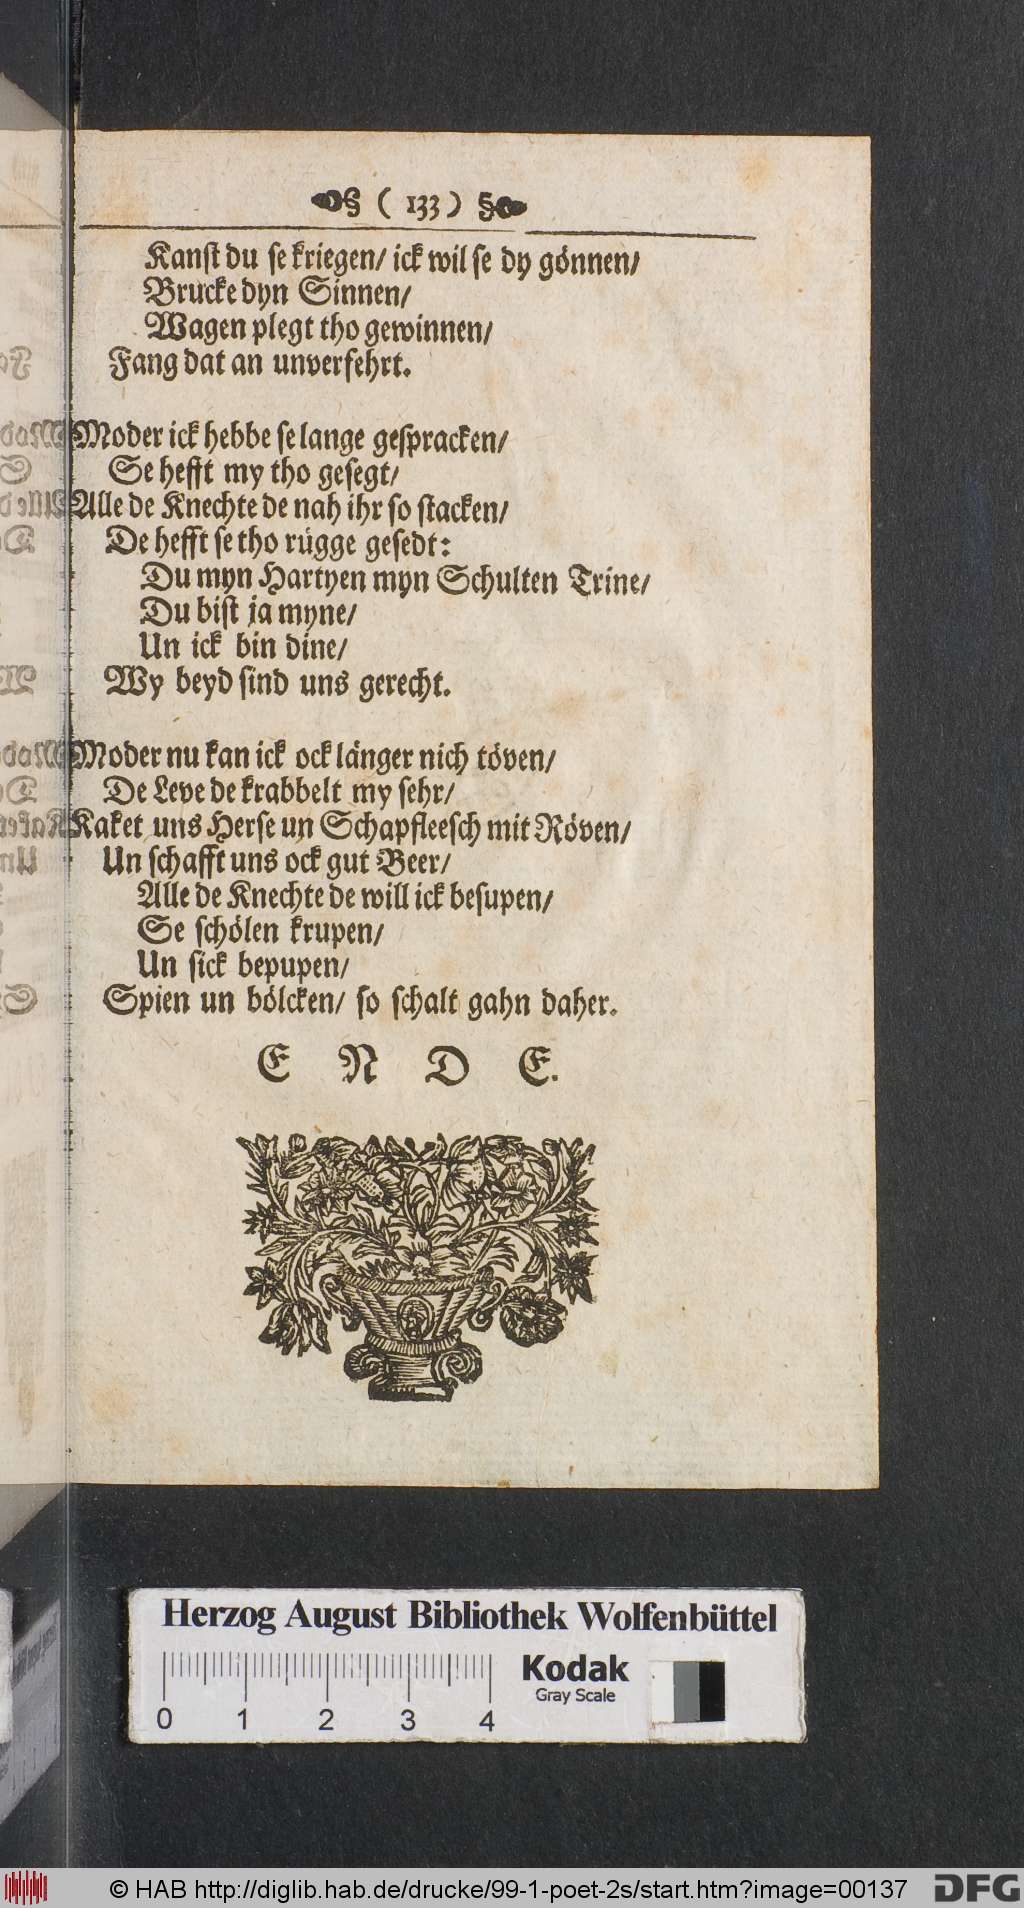 § ( 133 ) §
Kanst du se kriegen/ ick wil se dy gönnen/
Brucke dyn Sinnen/
Wagen plegt tho gewinnen/
Fang dat an unverfehrt.
Moder ick hebbe se lange gespracken/
Se hefft my tho gesegt/
Alle de Knechte de nah ihr so stacken/
De hefft se tho rügge gesedt:
Du myn Hartyen myn Schulten Trine/
Du bist ja myne/
Un ick bin dine/
Wy beyd sind uns gerecht.
Moder nu kan ick ock länger nich töven/
De Leve de krabbelt my sehr/
Kaket uns Herse un Schapfleesch mit Röven/
Un schafft uns ock gut Beer/
Alle de Knechte de will ick besupen/
Se schölen krupen/
Un sick bepupen/
Spien un bölcken/ so schalt gahn daher.
E N D E.
Herzog August Bibliothek Wolfenbüttel
Kodak
Gray Scale
0 1 2 3 4
© HAB http://diglib.hab.de/drucke/99-1-poet-2s/start.htm?image=00137
DFG